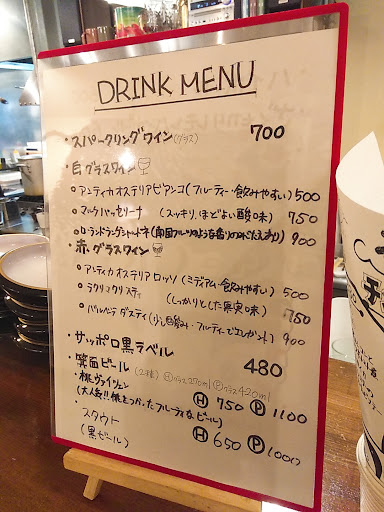 DRINK MENU
・スパークリングワイン(グラス) 700
・白グラスワイン
○アンティカオステリアビアンコ(フルーティー・飲みやすい) 500
○マァルケ パッセリーナ (スッキリ、ほどよい酸味) 750
(南国フルーツのような香りののみごたえあり) 900
・赤グラスワイン
○アンティカ オステリア ロッソ (ミディアム・飲みやすい) 500
○ラクリマクリスティ (しっかりとした果実味) 750
○バルベラ ダスティ (少し甘みフルーティーでエレガント) 900
・サッポロ黒ラベル 480
・箕面ビール (2種) Ⓗグラス250ml Ⓟグラス420ml
・桃ヴァイツェン Ⓗ 750 Ⓟ 1100
(大人気!!桃をつかったフルーティなビール)
スタウト Ⓗ 650 Ⓟ 1000
(黒ビール)